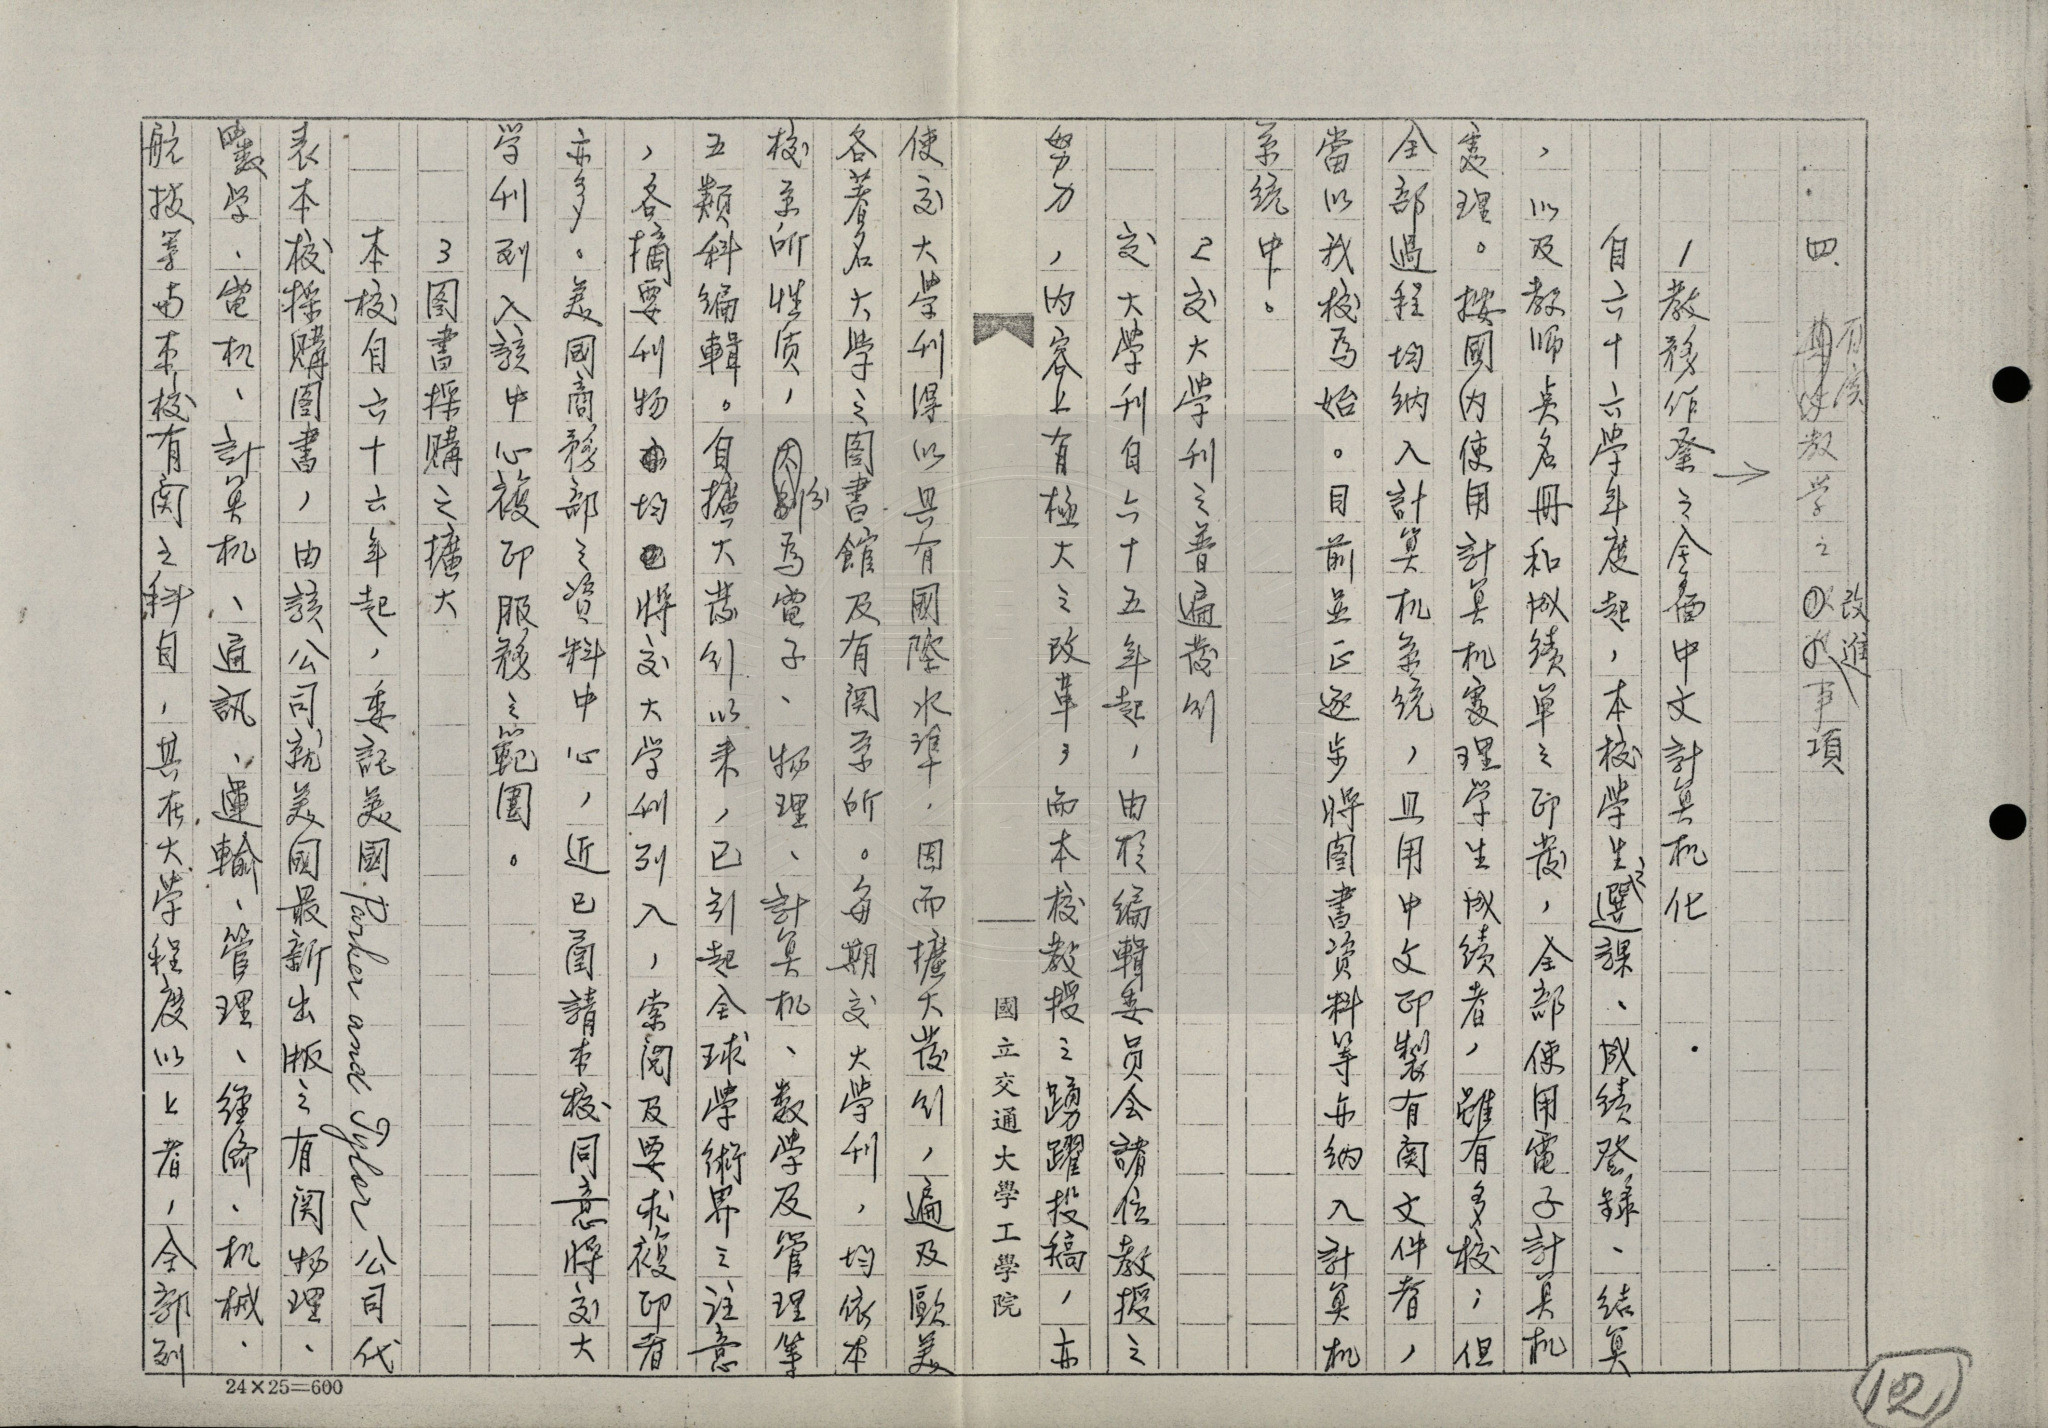 四、有关教学之改進事項
1教務作業之全面中文計算机化
自六十六學年度起，本校學生之選課、成績登錄、結算
，以及教师点名册和成績单之印发，全部使用電子計算机
處理。按國内使用計算机處理学生成績者，雖有多校；但
全部過程均纳入計算机系统，且用中文印製有関文件者，
當以我校為始。目前並正逐步将圖書資料等亦纳入計算机
系统中。
2交大学刊之普遍发行
交大學刊自六十五年起，由於編輯委员会諸位教授之
努力，内容上有極大之改革，而本校教授之踴躍投稿，亦
國立交通大學工學院
使交大學刊得以具有國際水準，因而擴大发行，遍及歐美
各著名大學之图書館及有関系所。每期交大學刊，均依本
校系所性质，分為電子、物理、計算机、数學及管理等
五類科編輯。自擴大发行以来，已引起全球學術界之注意
，各摘要刊物均将交大学刊列入，索阅及要求複印者
亦多。美國商務部之資料中心，近已函請本校同意将交大
学刊列入該中心複印服務之範圍。
3图書採購之擴大
本校自六十六年起，委託美國Parker and Tyler公司代
表本校採購图書，由該公司就美國最新出版之有関物理、
數学、電机、計算机、通訊、運輸、管理、經济、机械、
航技等与本校有関之科目，其在大學程度以上者，全部列
24×25=600